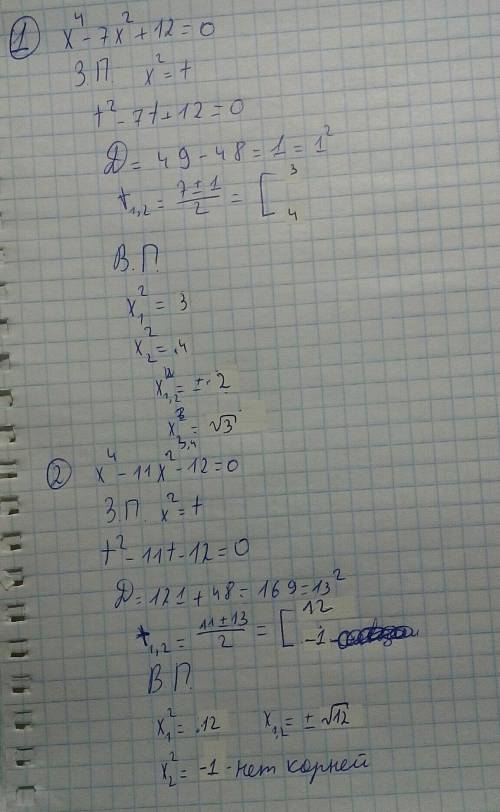 ① x⁴ - 7x² + 12 = 0
З.П. x² = t
t² - 7t + 12 = 0
D = 49 - 48 = 1 = 1²
t₁,₂ = (7 ± 1)/2 = [ 3
4
В.П.
x₁² = 3
x₂² = 4
x₁,₂ = ± 2
x₃,₄ = √3
② x⁴ - 11x² - 12 = 0
З.П. x² = t
t² - 11t - 12 = 0
D = 121 + 48 = 169 = 13²
t₁,₂ = (11 ± 13)/2 = [ 12
-1
В.П.
x₁² = 12 x₁,₂ = ± √12
x₂² = -1 - нет корней